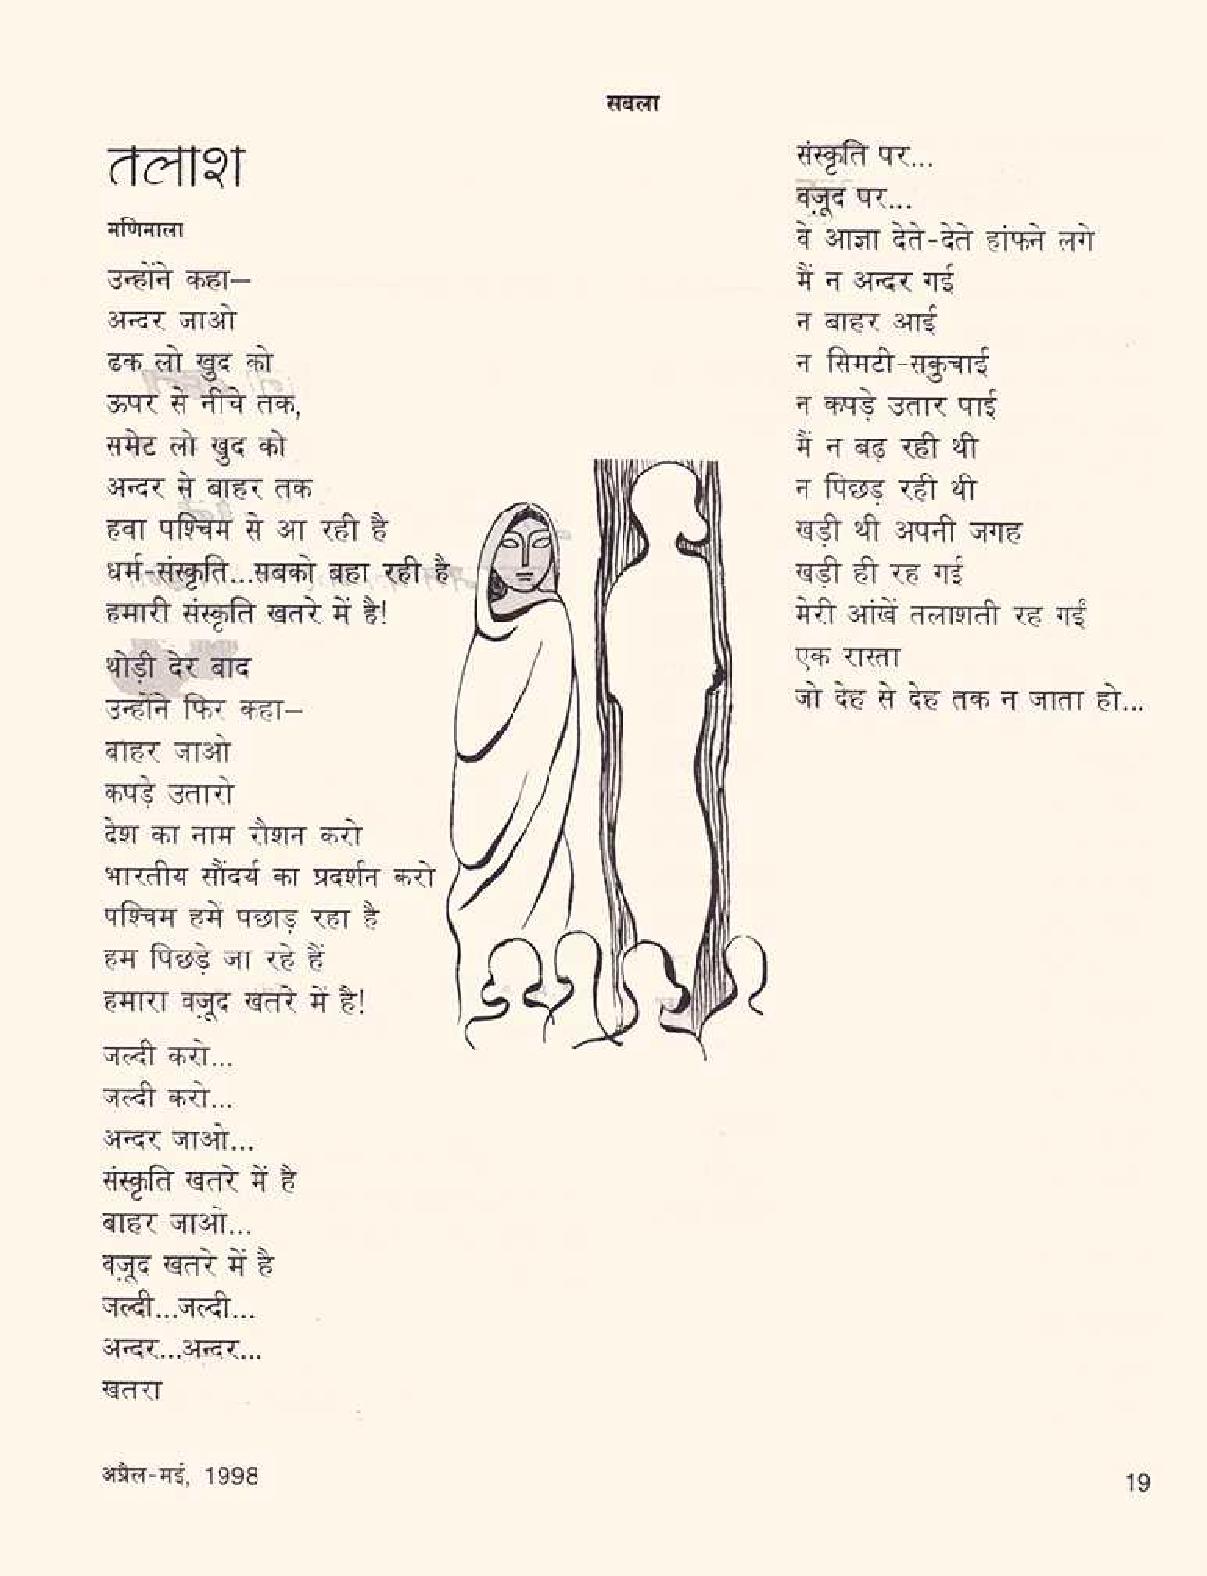 सबला
तलाश
मणिमाला
उन्होंने कहा—
अन्दर जाओ
ढक लो खुद को
ऊपर से नीचे तक,
समेट लो खुद को
अन्दर से बाहर तक
हवा पश्चिम से आ रही है
धर्म-संस्कृति...सबको बहा रही है
हमारी संस्कृति खतरे में है!
थोड़ी देर बाद
उन्होंने फिर कहा—
बाहर जाओ
कपड़े उतारो
देश का नाम रौशन करो
भारतीय सौंदर्य का प्रदर्शन करो
पश्चिम हमें पछाड़ रहा है
हम पिछड़े जा रहे हैं
हमारा वज़ूद खतरे में है!
जल्दी करो...
जल्दी करो...
अन्दर जाओ...
संस्कृति खतरे में है
बाहर जाओ...
वज़ूद खतरे में है
जल्दी...जल्दी...
अन्दर...अन्दर...
खतरा
संस्कृति पर...
वज़ूद पर...
वे आज्ञा देते-देते हांफने लगे
मैं न अन्दर गई
न बाहर आई
न सिमटी-सकुचाई
न कपड़े उतार पाई
मैं न बढ़ रही थी
न पिछड़ रही थी
खड़ी थी अपनी जगह
खड़ी ही रह गई
मेरी आंखें तलाशती रह गईं
एक रास्ता
जो देह से देह तक न जाता हो...
अप्रैल-मई, 1998
19